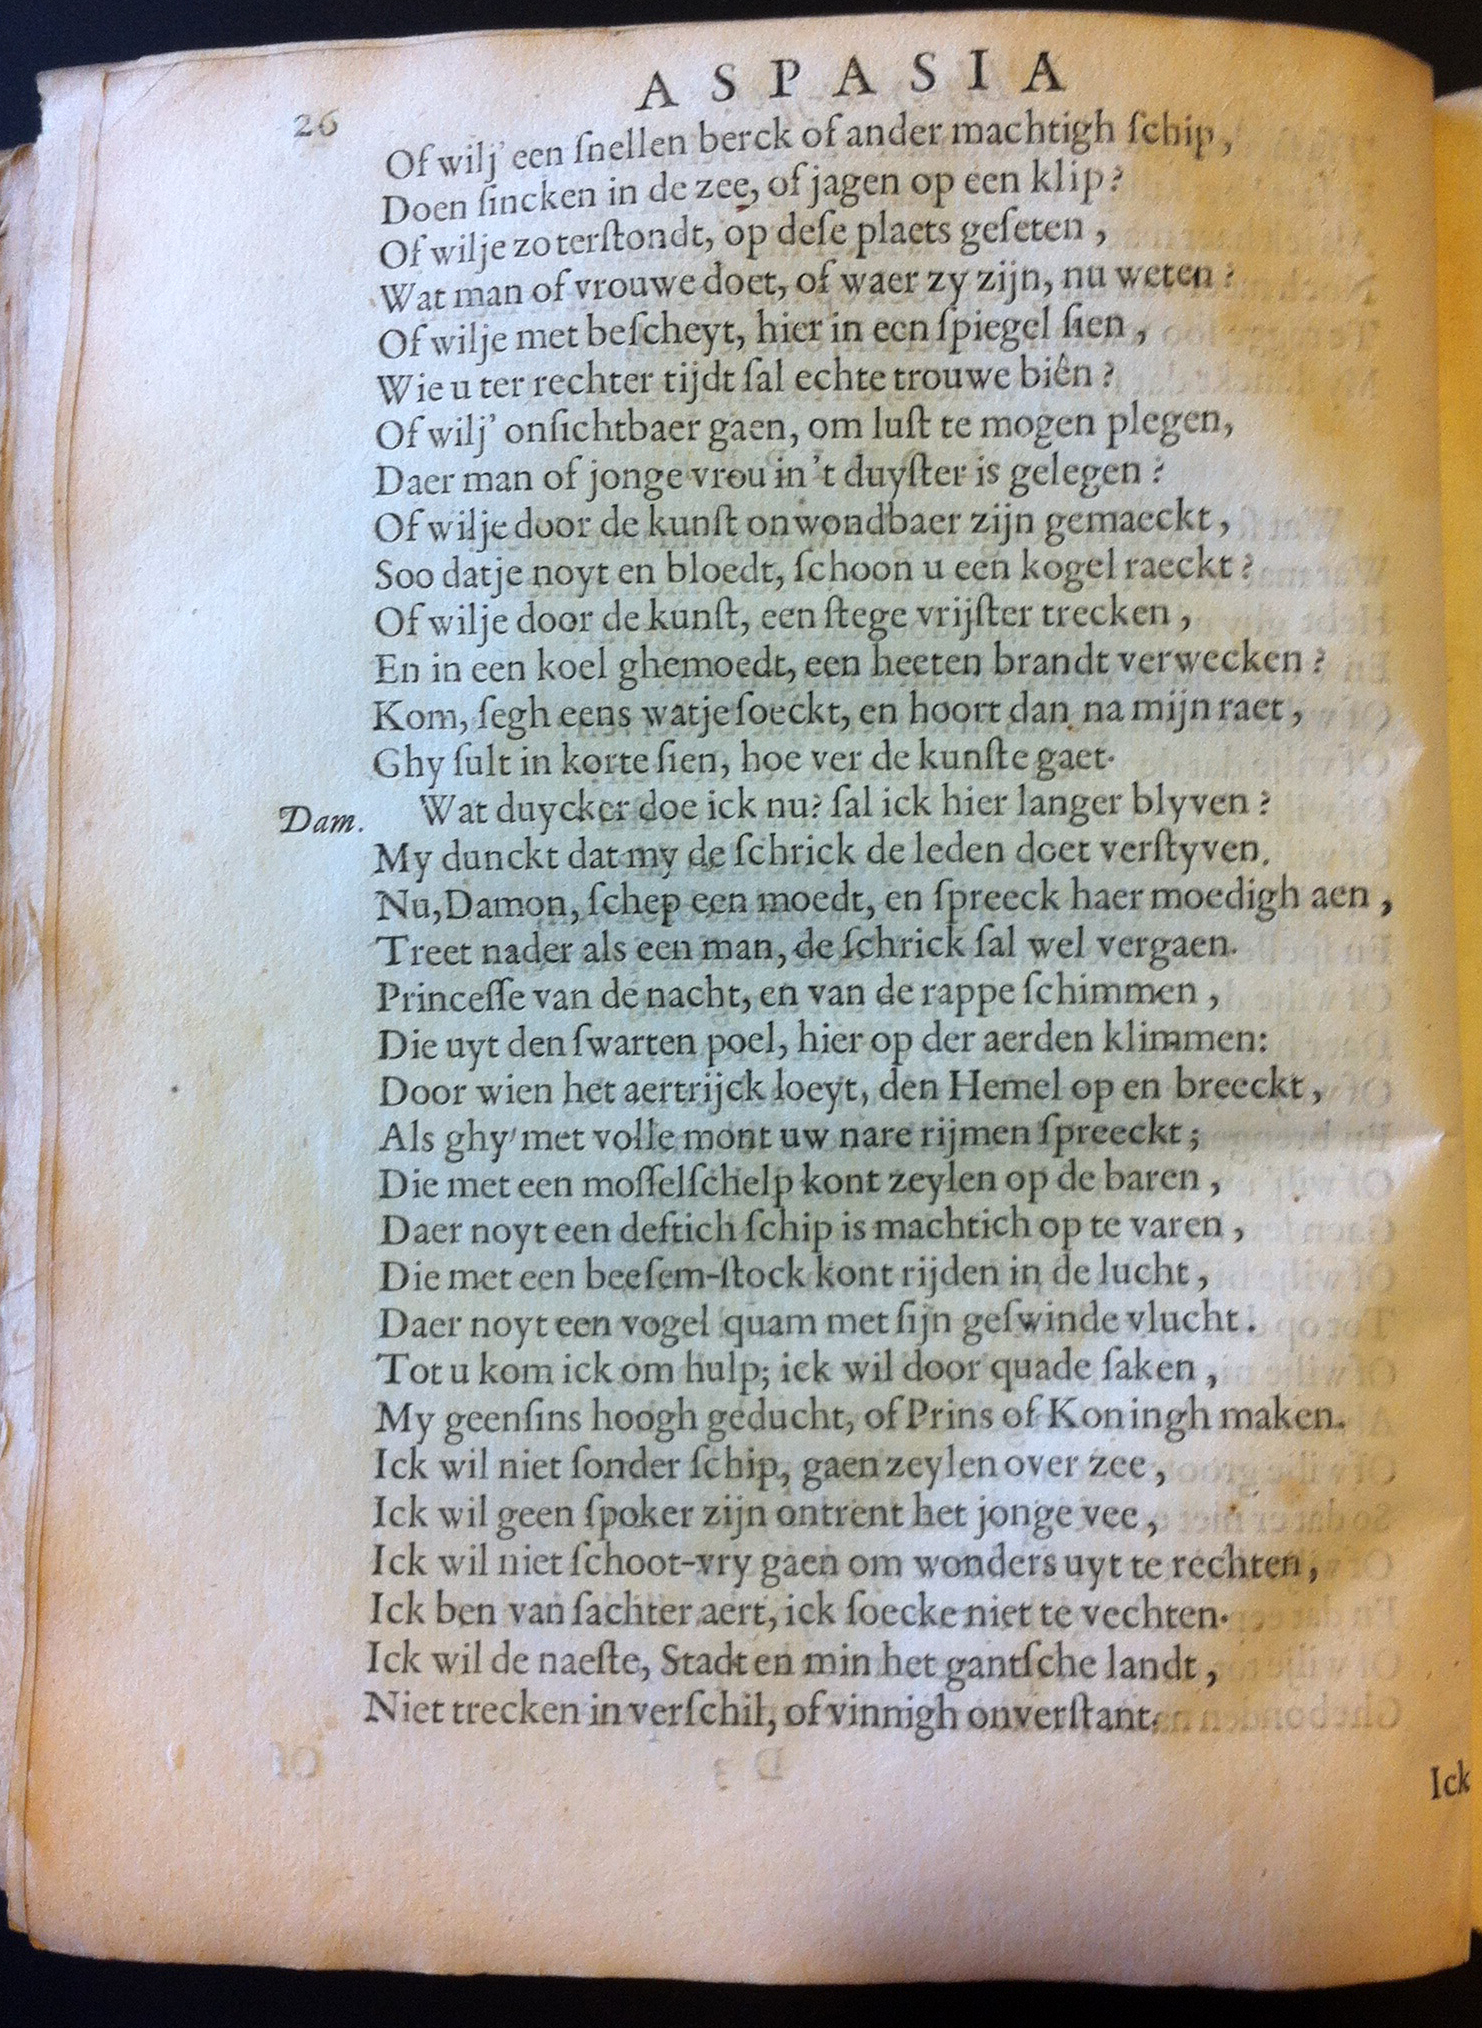 ASPASIA
26
Of wilj' een ſnellen berck of ander machtigh ſchip,
Doen ſincken in de zee, of jagen op een klip?
Of wilje zo terſtondt, op deſe plaets geſeten,
Wat man of vrouwe doet, of waer zy zijn, nu weten?
Of wilje met beſcheyt, hier in een ſpiegel ſien,
Wie u ter rechter tijdt ſal echte trouwe biên?
Of wilj' onſichtbaer gaen, om luſt te mogen plegen,
Daer man of jonge vrou in 't duyſter is gelegen?
Of wilje door de kunſt onwondbaer zijn gemaeckt,
Soo datje noyt en bloedt, ſchoon u een kogel raeckt?
Of wilje door de kunſt, een ſtege vrijſter trecken,
En in een koel ghemoedt, een heeten brandt verwecken?
Kom, ſegh eens watje ſoeckt, en hoort dan na mijn raet,
Ghy ſult in korte ſien, hoe ver de kunſte gaet.
Dam. Wat duycker doe ick nu? ſal ick hier langer blyven?
My dunckt dat my de ſchrick de leden doet verſtyven.
Nu, Damon, ſchep een moedt, en ſpreeck haer moedigh aen,
Treet nader als een man, de ſchrick ſal wel vergaen.
Princeſſe van de nacht, en van de rappe ſchimmen,
Die uyt den ſwarten poel, hier op der aerden klimmen:
Door wien het aertrijck loeyt, den Hemel op en breeckt,
Als ghy' met volle mont uw nare rijmen ſpreeckt;
Die met een moſſelſchelp kont zeylen op de baren,
Daer noyt een deftich ſchip is machtich op te varen,
Die met een beeſem-ſtock kont rijden in de lucht,
Daer noyt een vogel quam met ſijn geſwinde vlucht.
Tot u kom ick om hulp; ick wil door quade ſaken,
My geenſins hoogh geducht, of Prins of Koningh maken.
Ick wil niet ſonder ſchip, gaen zeylen over zee,
Ick wil geen ſpoker zijn ontrent het jonge vee,
Ick wil niet ſchoot-vry gaen om wonders uyt te rechten,
Ick ben van ſachter aert, ick ſoecke niet te vechten.
Ick wil de naeſte, Stadt en min het gantſche landt,
Niet trecken in verſchil, of vinnigh onverſtant.
Ick